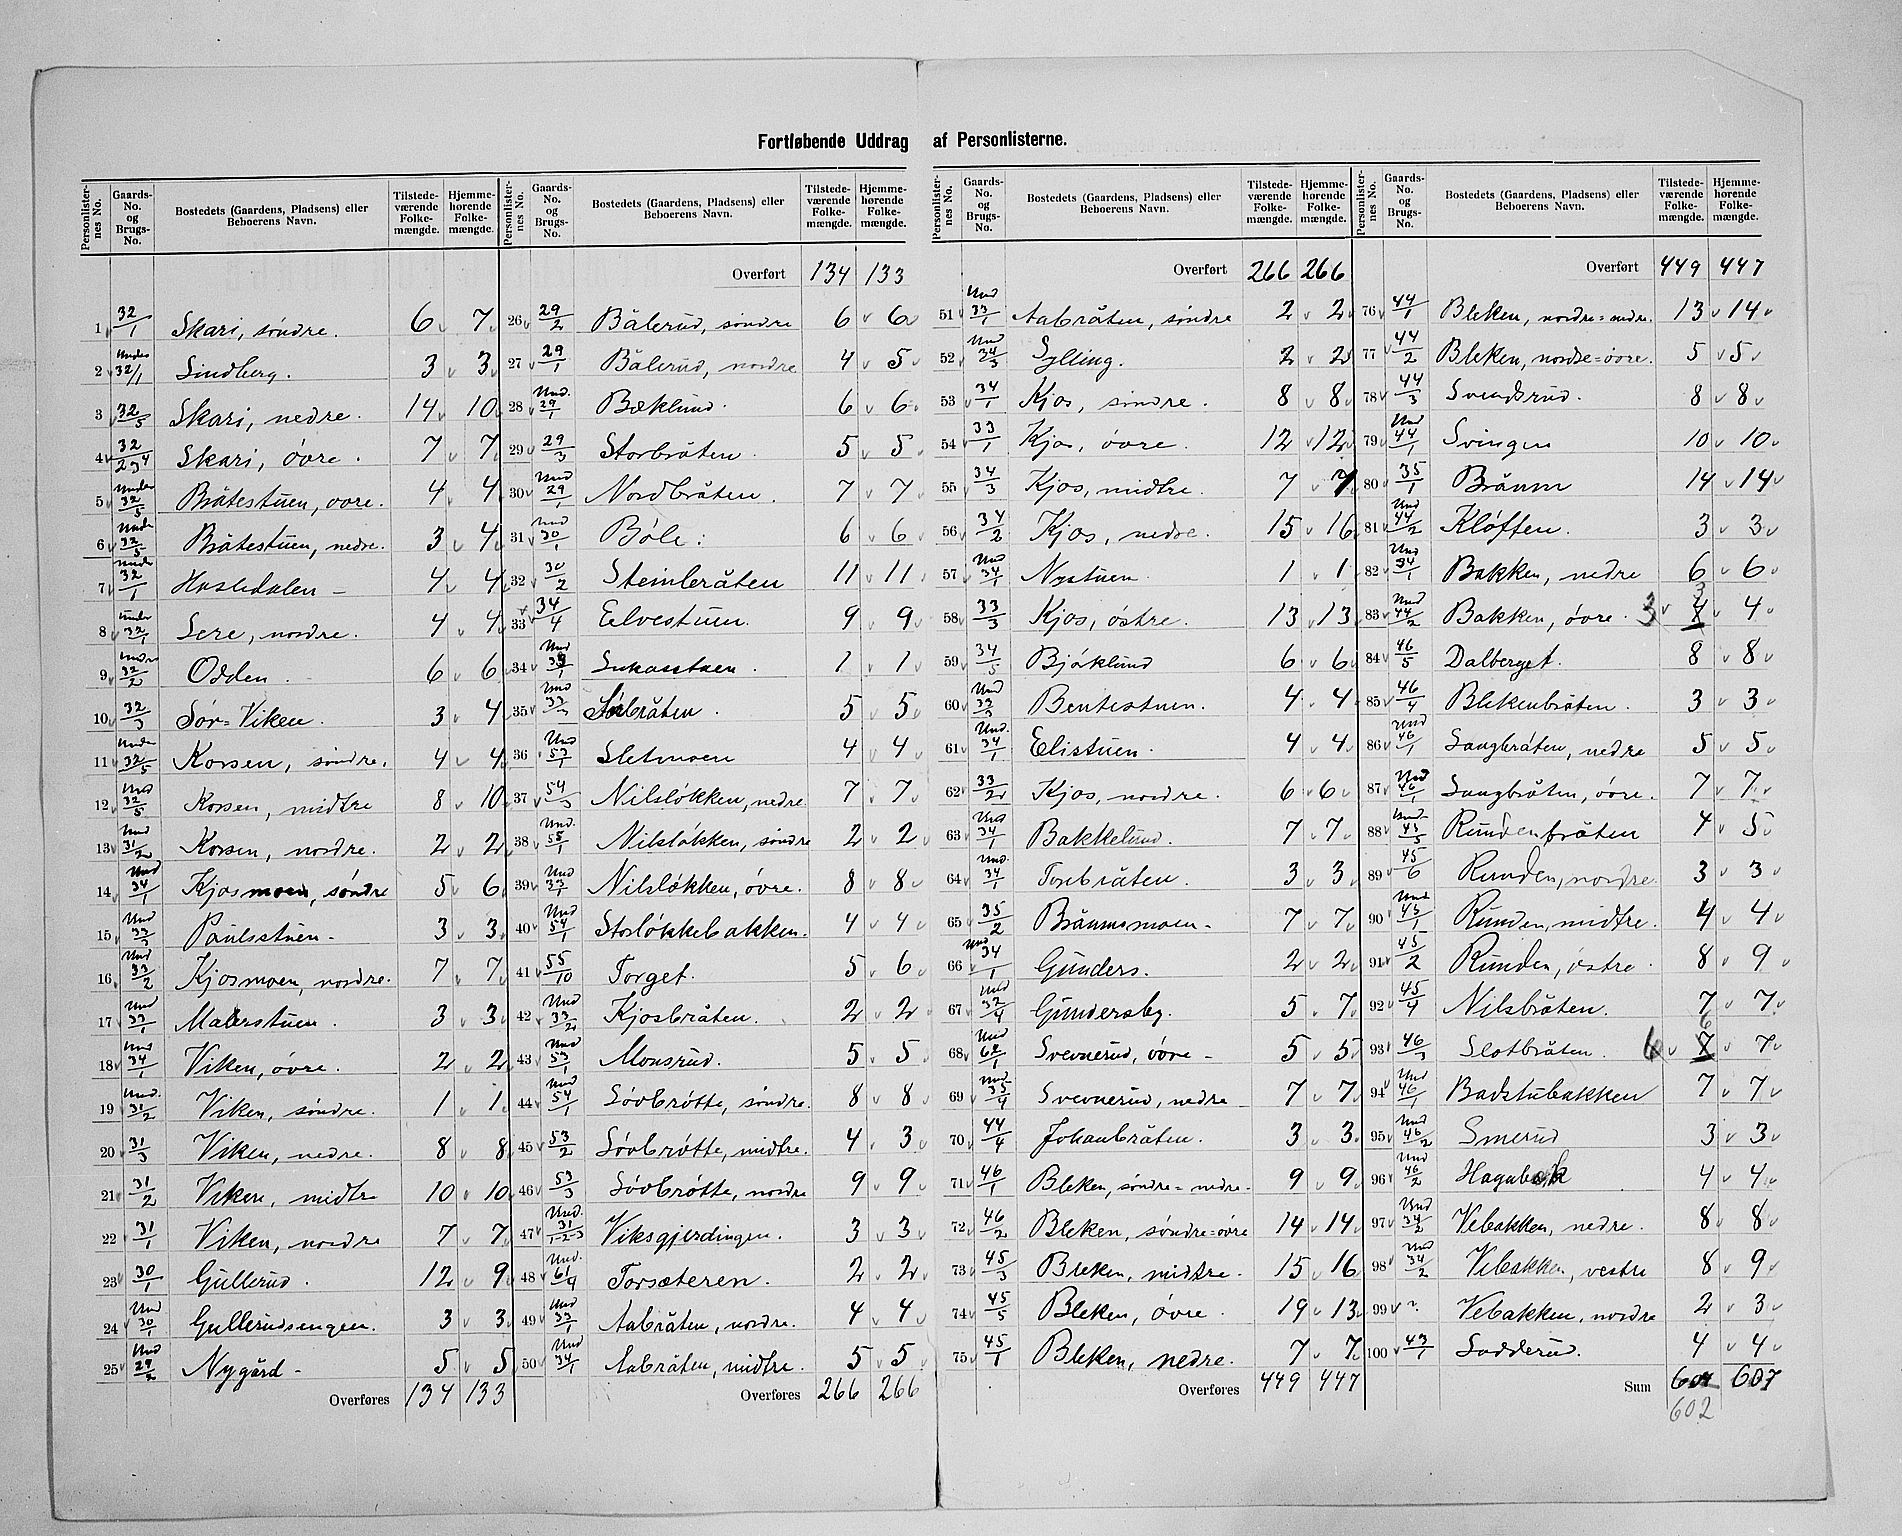 Fortløbende Uddrag af Personlisterne.
Personlister-nes No. Gaards-No. og Brugs-No. Bostedets (Gaardens, Pladsens) eller Beboerens Navn. Tilstede-værende Folke-mængde. Hjemme-hørende Folke-mængde.
1 32/1 Skari, søndre. 6 7
2 Under 32/1 Lindberg. 3 3
3 32/5 Skari, nedre. 14 10
4 32/2 3 4 Skari, övre. 7 7
5 Under 32/5 Bråtestuen, övre. 4 4
6 Under 32/5 Bråtestuen, nedre. 3 4
7 Under 32/1 Hasledalen - 4 4
8 Under 32/1 Lere, nordre. 4 4
9 Under 32/2 Odden. 6 6
10 32/3 Sør=Viken. 3 4
11 Under 32/5 Korsen, søndre. 4 4
12 Und 32/5 Korsen, midtre 8 10
13 Und 31/2 Korsen, nordre. 2 2
14 Und 34/1 Kjosmoen, søndre 5 6
15 Und 33/3 Paulsstuen - 3 3
16 Und 33/2 Kjosmoen, nordre. 7 7
17 Und 33/1 Malerstuen. 3 3
18 Und 34/1 Viken, övre. 2 2
19 Und. 31/2 Viken, søndre. 1 1
20 31/3 Viken, nedre. 8 8
21 31/2 Viken, midtre 10 10
22 31/1 Viken, nordre 7 7
23 30/1 Gullerud. 12 9
24 Und 30/1 Gullerudsengen. 3 3
25 Und 29/2 Nygård - 5 5
Overføres 134 133
Personlister-nes No. Gaards-No. og Brugs-No. Bostedets (Gaardens, Pladsens) eller Beboerens Navn. Tilstede-værende Folke-mængde. Hjemme-hørende Folke-mængde.
Overført 134 133
26 29/2 Bålerud, søndre 6 6
27 29/1 Bålerud, nordre 4 5
28 Und. 29/1 Bæklund. 6 6
29 29/3 Storbråten. 5 5
30 Und 29/1 Nordbråten. 7 7
31 Und 30/1 Bøle: 6 6
32 30/2 Steinbråten 11 11
33 34/4 Elvestuen. 9 9
34 Und Lukasstuen. 1 1
35 Und Sørbråten. 5 5
36 Und 53/1 Sletmoen 4 4
37 54/3 Nilsløkken, nedre 7 7
38 Und. 55/1 Nilsløkken, søndre 2 2
39 Und 33/1 Nilsløkken, övre. 8 8
40 Und 54/1 Storløkkebakken. 4 4
41 55/10 Torget. 5 6
42 Und 33/2 Kjosbråten. 2 2
43 Und 53/1 Monsrud. 5 5
44 Und 54/1 Løvbråtte, søndre. 8 8
45 53/2 Løvbråtte, midtre. 4 3
46 53/3 Løvbråtte, nordre 9 9
47 Und. 31/1-2-3 Viksgjerdingen. 3 3
48 Und. 61/4 Torsæteren. 2 2
49 Und 33/1 Aabråten, nordre. 4 4
50 Und 34/1 Aabråten, midtre. 5 5
Overføres 266 266
Personlister-nes No. Gaards-No. og Brugs-No. Bostedets (Gaardens, Pladsens) eller Beboerens Navn. Tilstede-værende Folke-mængde. Hjemme-hørende Folke-mængde.
Overført 266 266
51 Und 33/1 Aabråten, søndre 2 2
52 Und 34/3 Sylling. 2 2
53 34/1 Kjos, søndre. 8 8
54 33/1 Kjos, övre. 12 12
55 34/3 Kjos, midtre. 7 7
56 34/2 Kjos, nedre. 15 16
57 Und 34/1 Nystuen. 1 1
58 33/3 Kjos, östre. 13 13
59 34/5 Bjöklund 6 6
60 Und 33/3 Bentestuen. 4 4
61 Und. 34/1 Elistuen. 4 4
62 33/2 Kjos, nordre. 6 6
63 Und 34/1 Bakkelund. 7 7
64 Und. 34/1 Torbråten. 3 3
65 35/2 Bråumsmoen - 7 7
66 Und 34/1 Gunders. 2 2
67 Und 32/4 Gundersby. 5 7
68 Und 62/1 Svevnerud, övre - 5 5
69 Und 35/4 Svevnerud, nedre 7 7
70 44/4 Johanbråten. 3 3
71 46/1 Bleken, søndre=nedre. 9 9
72 46/2 Bleken, søndre=övre 14 14
73 45/3 Bleken, midtre. 15 16
74 45/5 Bleken, övre. 19 13
75 45/1 Bleken, nedre. 7 7
Overføres 449 447
Personlister-nes No. Gaards-No. og Brugs-No. Bostedets (Gaardens, Pladsens) eller Beboerens Navn. Tilstede-værende Folke-mængde. Hjemme-hørende Folke-mængde.
Overført 449 447
76 44/1 Bleken, nordre=nedre. 13 14
77 44/2 Bleken, nordre=övre. 5 5
78 44/3 Svendsrud. 8 8
79 Und 44/1 Svingen 10 10
80 35/1 Bråum 14 14
81 Und 44/2 Kløften. 3 3
82 Und 34/1 Bakken, nedre 6 6
83 Und 44/2 Bakken, övre. 3 4 3 4
84 46/5 Dalberget. 8 8
85 46/4 Blekenbråten. 3 3
86 Und 46/1 Langbråten, nedre 5 5
87 Und 46/1 Langbråten, övre. 7 7
88 Und 45/5 Rundenbråten 4 5
89 45/6 Runden, nordre. 3 3
90 Und 45/1 Runden, midtre. 4 4
91 45/2 Runden, östre. 8 9
92 45/4 Nilsbråten. 7 7
93 46/3 Slotbråten. 6 7 6 7
94 Und 46/1 Badstubakken 7 7
95 Und 46/2 Smerud 3 3
96 Und 46/2 Hagabak 4 4
97 Und 34/2 Vebakken, nedre. 8 8
98 Und 34/2 Vebakken, vestre 8 9
99 ? Vebakken, nordre 2 3
100 43/1 Ladderud. 4 4
Sum 604 607
602